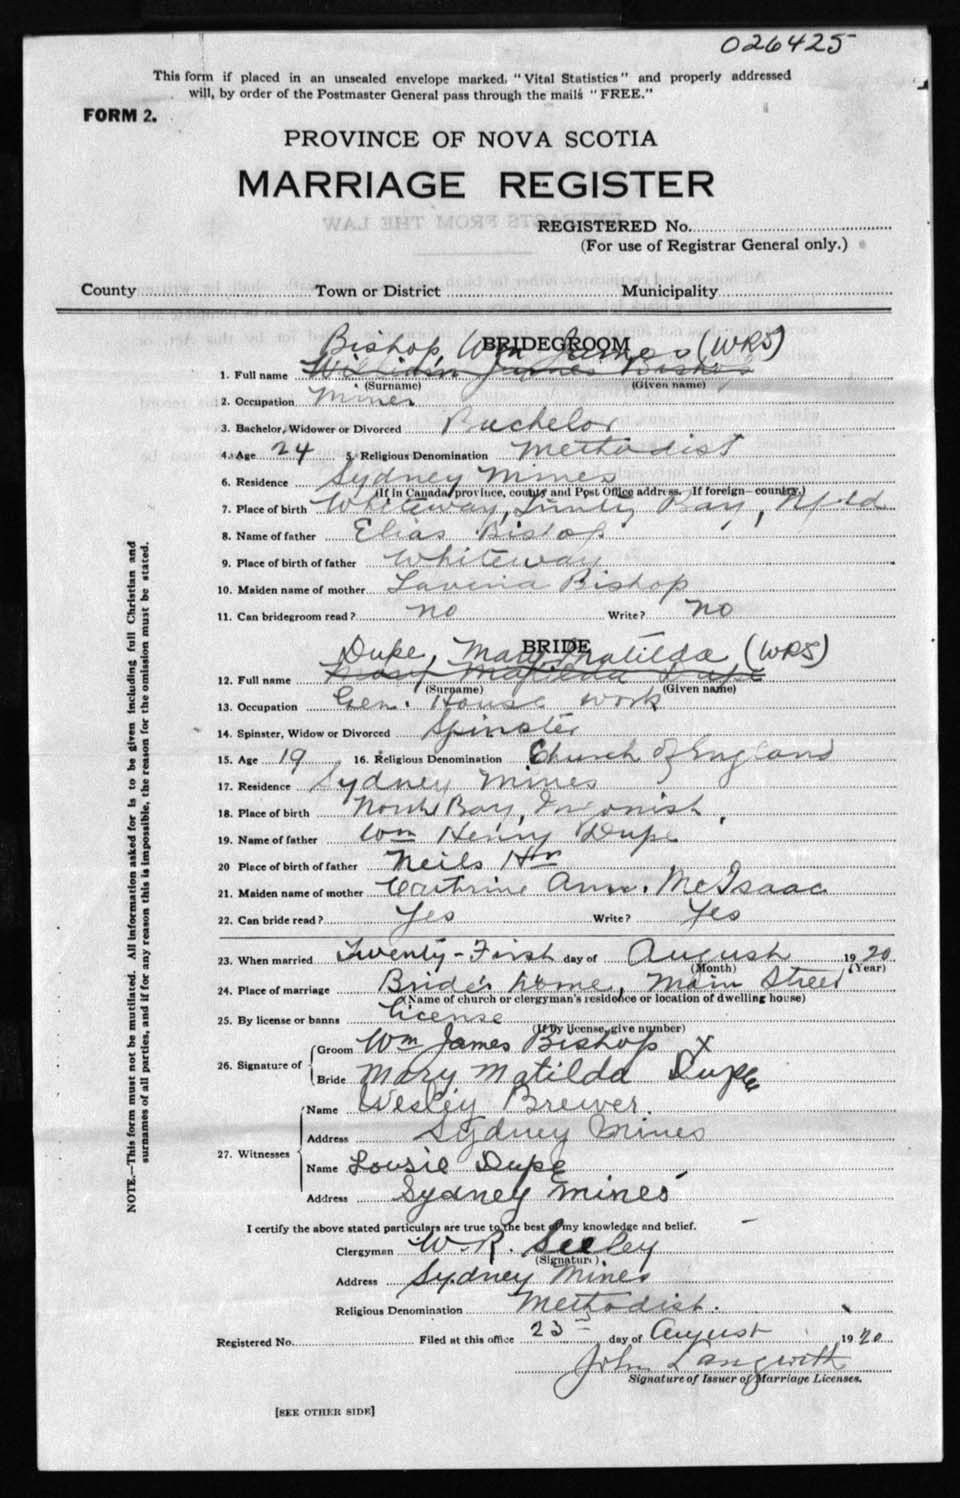 026425
This form if placed in an unsealed envelope marked, "Vital Statistics" and properly addressed
will, by order of the Postmaster General pass through the mails "FREE."
FORM 2.
PROVINCE OF NOVA SCOTIA
MARRIAGE REGISTER
REGISTERED No.
(For use of Registrar General only.)
County Town or District Municipality
BRIDEGROOM
Bishop, Wm James (WRS)
1. Full name William James Bishop
(Surname) (Given name)
2. Occupation Miner
3. Bachelor, Widower or Divorced Bachelor
4. Age 24 5. Religious Denomination Methodist
6. Residence Sydney Mines
(If in Canada, province, county and Post Office address. If foreign—country.)
7. Place of birth Whiteway, Trinity Bay, Nfld
8. Name of father Elias Bishop
9. Place of birth of father Whiteway
10. Maiden name of mother Lavenia Bishop
11. Can bridegroom read? no Write? no
BRIDE
Dupe, Mary Matilda (WRS)
12. Full name Mary Matilda Dupe
(Surname) (Given name)
13. Occupation Gen. House work
14. Spinster, Widow or Divorced Spinster
15. Age 19 16. Religious Denomination Church of England
17. Residence Sydney Mines
18. Place of birth North Bay, Ingonish,
19. Name of father Wm Henry Dupe
20 Place of birth of father Neils Hr
21. Maiden name of mother Cathrine Ann. McIsaac
22. Can bride read? Yes Write? Yes
23. When married Twenty-First day of August 1920
(Month) (Year)
24. Place of marriage Bride's home, Main Street
(Name of church or clergyman's residence or location of dwelling house)
25. By license or banns License
(If by license, give number)
26. Signature of Groom Wm James Bishop X
Bride Mary Matilda Dupe
27. Witnesses Name Wesley Brewer.
Address Sydney Mines
Name Lousie Dupe
Address Sydney Mines
I certify the above stated particulars are true to the best of my knowledge and belief.
Clergyman W. R. Seeley
(Signature)
Address Sydney Mines
Religious Denomination Methodist.
Registered No. Filed at this office 23rd day of August 1920
John Langwith
Signature of Issuer of Marriage Licenses.
[SEE OTHER SIDE]
NOTE.—This form must not be mutilated. All information asked for is to be given including full Christian and
surnames of all parties, and if for any reason this is impossible, the reason for the omission must be stated.